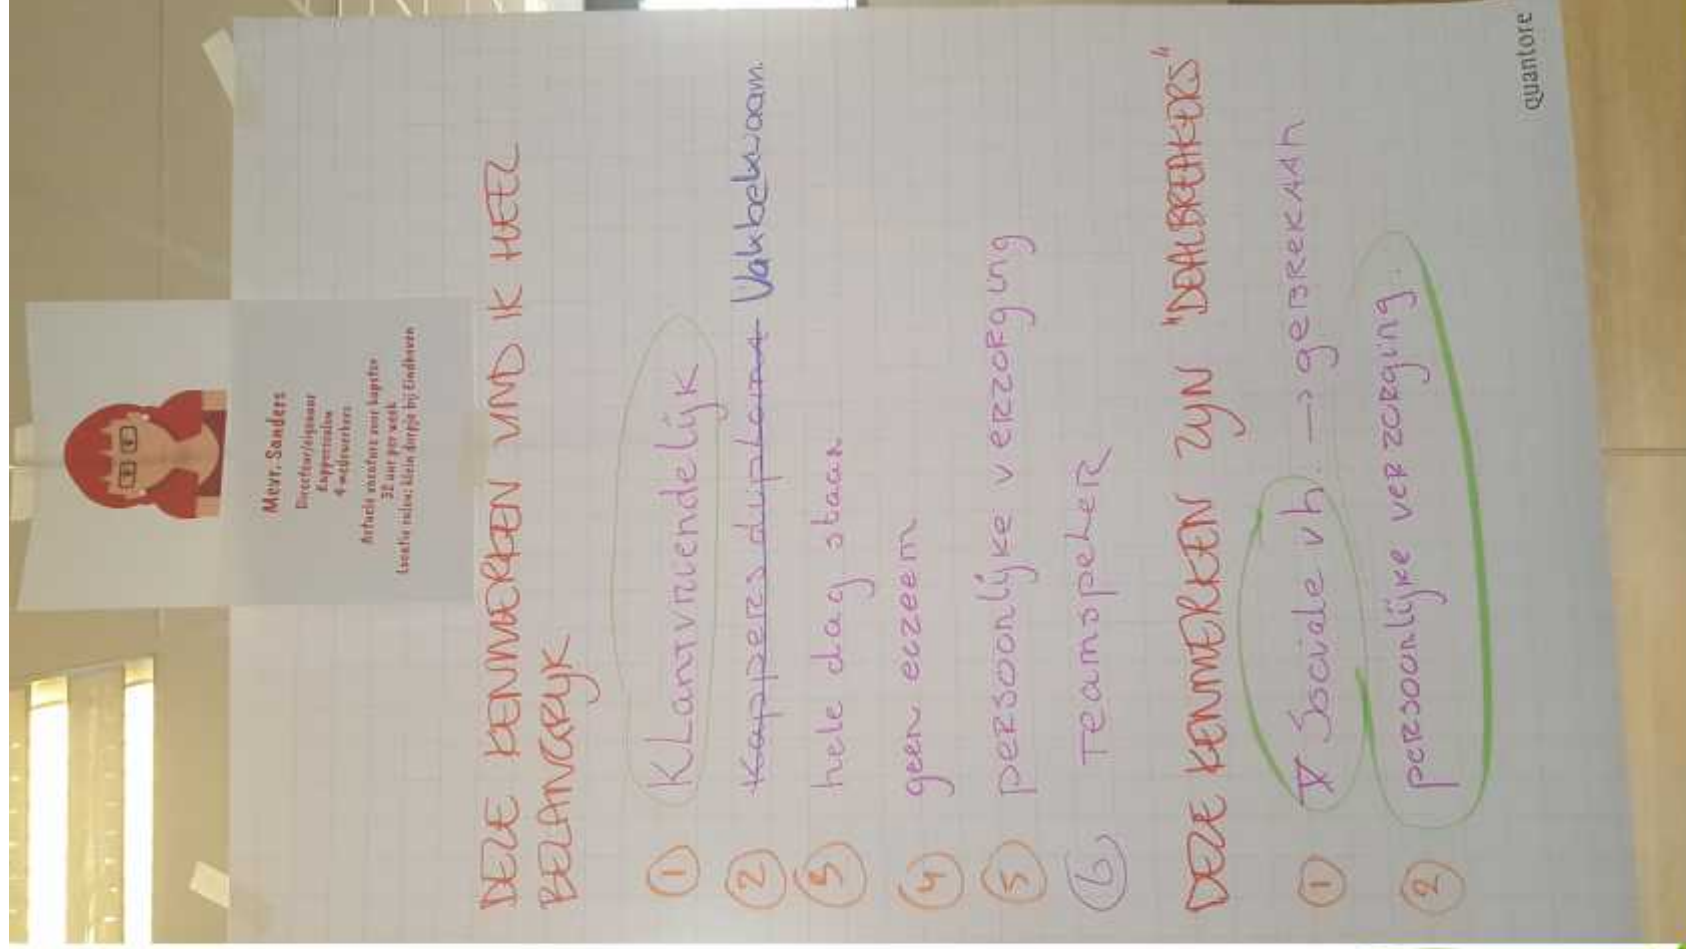 Mevr. Sanders
Directeur/eigenaar
Kapperssalon
4 medewerkers
Actuele vacature voor kapster
32 uur per week
Locatie salon: klein dorpje bij Eindhoven
DEZE KENMERKEN VIND IK HEEL
BELANGRIJK
① Klantvriendelijk
② Kappersdiploma Vakbekwaam
③ hele dag staan
④ geen eczeem
⑤ persoonlijke verzorging
⑥ Teamspeler
DEZE KENMERKEN ZIJN "DEALBREAKERS"
① Sociale vh. → geBReKAAn
② persoonlijke verzorging.
quantore